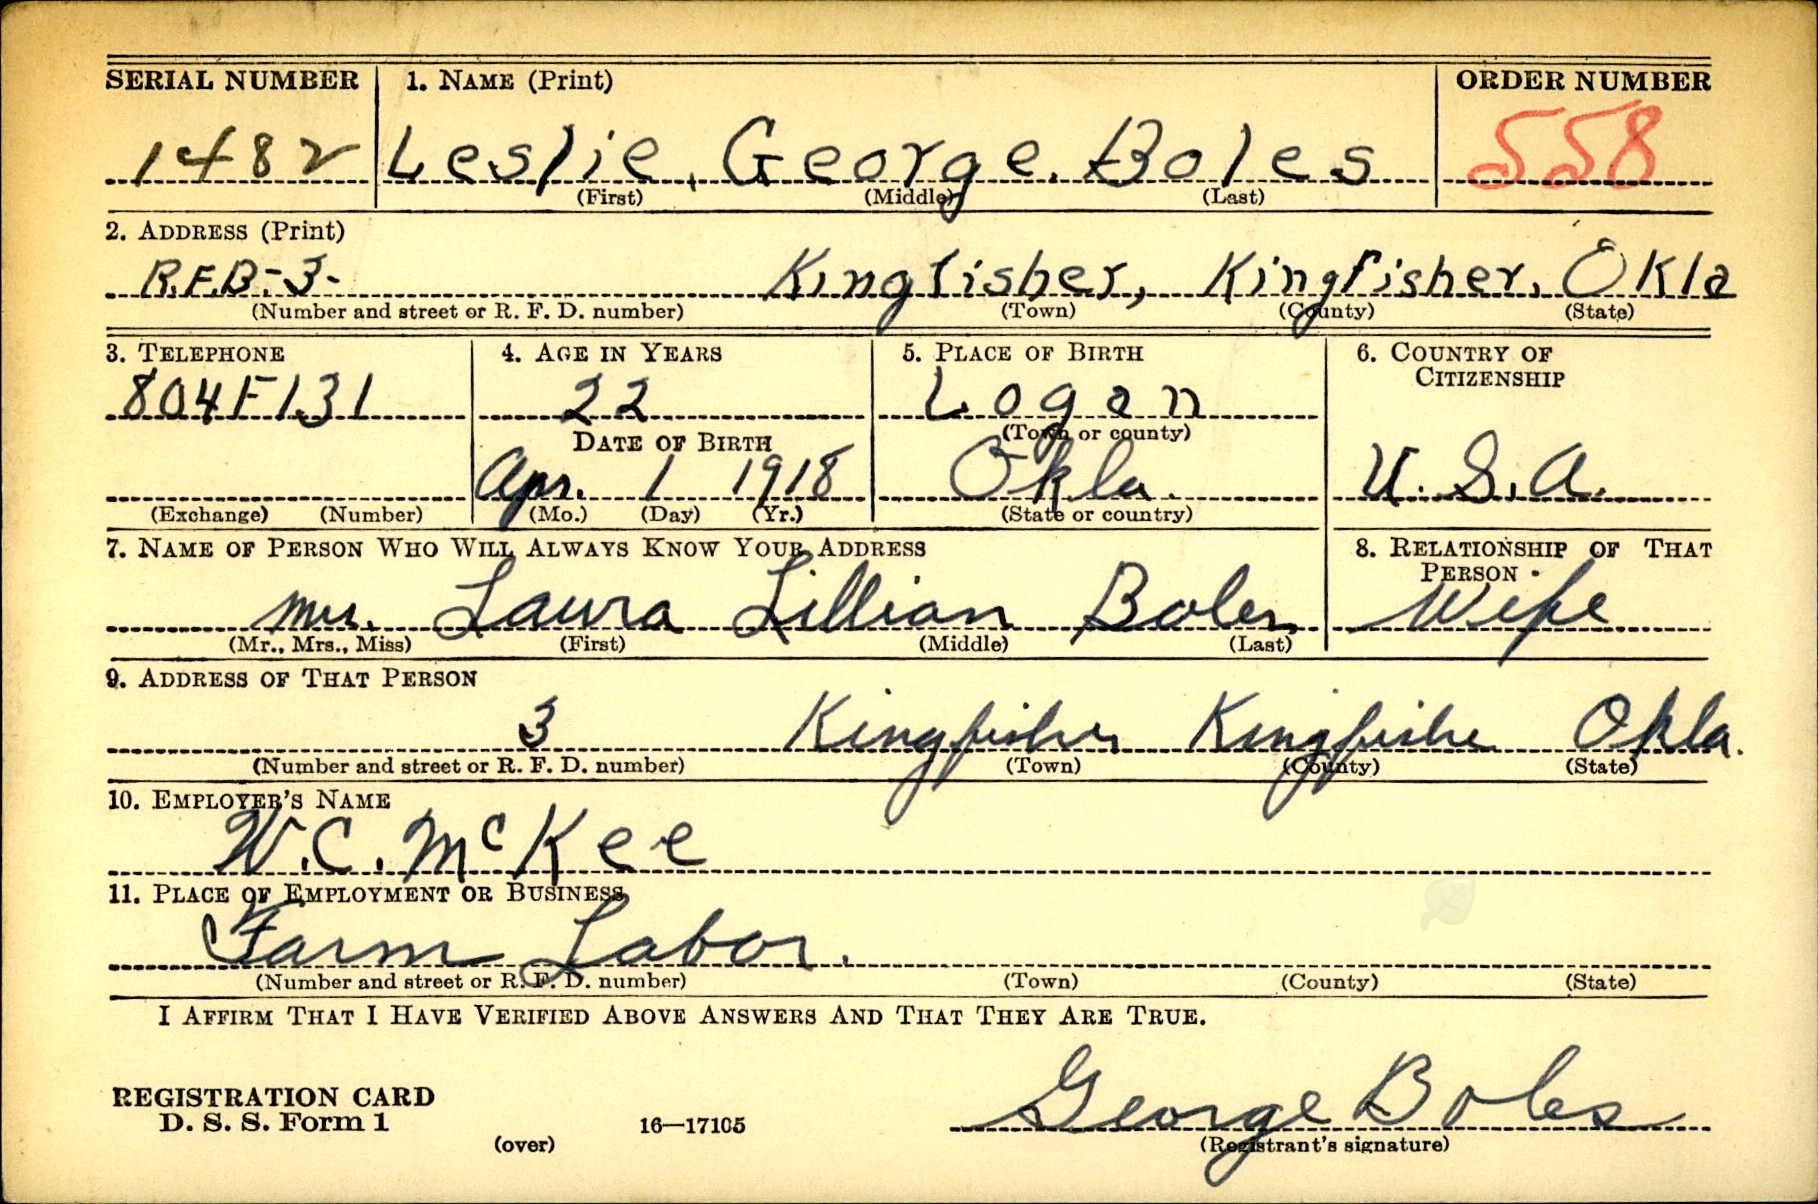 SERIAL NUMBER 1. NAME (Print) ORDER NUMBER
1482 Leslie, George. Boles 558
(First) (Middle) (Last)
2. ADDRESS (Print)
R.F.D.-3- Kingfisher, Kingfisher, Okla
(Number and street or R. F. D. number) (Town) (County) (State)
3. TELEPHONE 4. AGE IN YEARS 5. PLACE OF BIRTH 6. COUNTRY OF
CITIZENSHIP
804F131 22 Logan
DATE OF BIRTH (Town or county)
Apr. 1 1918 Okla. U. S. A.
(Exchange) (Number) (Mo.) (Day) (Yr.) (State or country)
7. NAME OF PERSON WHO WILL ALWAYS KNOW YOUR ADDRESS 8. RELATIONSHIP OF THAT
PERSON
Mrs. Laura Lillian Boles Wife
(Mr., Mrs., Miss) (First) (Middle) (Last)
9. ADDRESS OF THAT PERSON
3 Kingfisher Kingfisher Okla.
(Number and street or R. F. D. number) (Town) (County) (State)
10. EMPLOYER'S NAME
W. C. McKee
11. PLACE OF EMPLOYMENT OR BUSINESS
Farm Labor.
(Number and street or R. F. D. number) (Town) (County) (State)
I AFFIRM THAT I HAVE VERIFIED ABOVE ANSWERS AND THAT THEY ARE TRUE.
George Boles
REGISTRATION CARD
D. S. S. Form 1 16—17105
(over) (Registrant's signature)